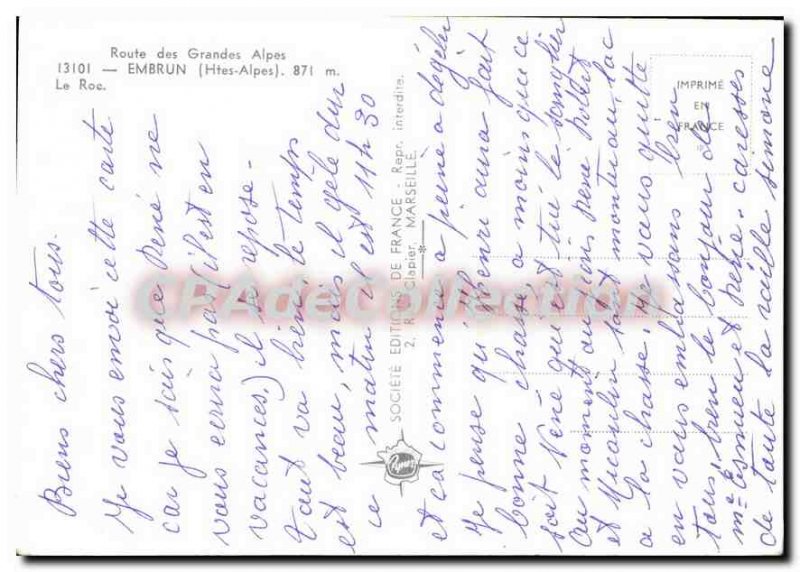 Route des Grandes Alpes
13101 — EMBRUN (Htes-Alpes). 871 m.
Le Roc.
IMPRIMÉ
EN
FRANCE
SOCIÉTÉ EDITIONS DE FRANCE - Repr. interdite.
2, R. Clapier, MARSEILLE
CPAdeCollection.com
Biens chers tous.
Je vous envoi cette carte
car je sais que René ne
vous ecrira pas (il est en
vacances,) il se repose-
tout va bien, le temps
est beau, mais il gèle dur
ce matin il est 11h 30
et ca commence a peine a dégéler
Je pense qu'Henri aura fait
bonne chasse, a moins que ce
soit René qui est tué le sanglier
au moment René Robert
et sont montés au lac
a la chasse. je vous quitte
en vous embrassons bien
tous, bien le bonjour de
et René. caresses
de toute la simone